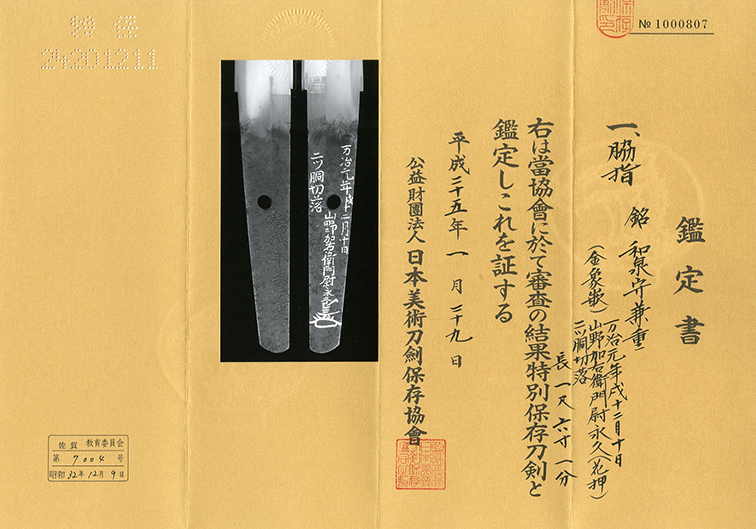 № 1000807
鑑定書
一、脇指 銘 和泉守兼重
(金象嵌)万治元年戌十二月十日
山野加右衛門尉永久(花押)
二ツ胴切落
長 一尺 六寸 一分
右は當協會に於て審査の結果特別保存刀剣と
鑑定しこれを証する
平成二十五年 一月 二十九日
公益財團法人 日本美術刀劍保存協會
万治元年戌十二月十日
山野加右衛門尉永久
二ツ胴切落
24201211
佐賀 教育委員会
第 7004 号
昭和 32年 12月 9日